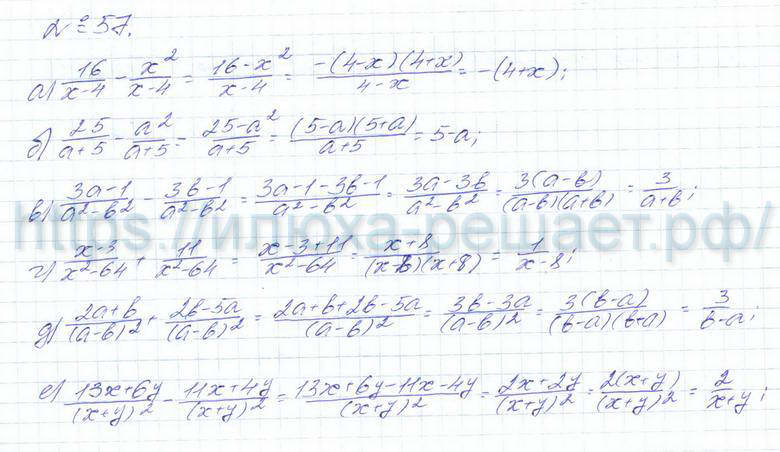 №57.
а) 16/(x-4) - x²/(x-4) = (16-x²)/(x-4) = -(4-x)(4+x)/(4-x) = -(4+x);
б) 25/(a+5) - a²/(a+5) = (25-a²)/(a+5) = (5-a)(5+a)/(a+5) = 5-a;
в) (3a-1)/(a²-b²) - (3b-1)/(a²-b²) = (3a-1-3b-1)/(a²-b²) = (3a-3b)/(a²-b²) = 3(a-b)/((a-b)(a+b)) = 3/(a+b);
https://илюха-решает.рф/
г) (x-3)/(x²-64) + 11/(x²-64) = (x-3+11)/(x²-64) = (x+8)/((x-8)(x+8)) = 1/(x-8);
д) (2a+b)/(a-b)² + (2b-5a)/(a-b)² = (2a+b+2b-5a)/(a-b)² = (3b-3a)/(a-b)² = 3(b-a)/((b-a)(b+a)) = 3/(b-a);
е) (13x+6y)/(x+y)² - (11x+4y)/(x+y)² = (13x+6y-11x-4y)/(x+y)² = (2x+2y)/(x+y)² = 2(x+y)/(x+y)² = 2/(x+y);